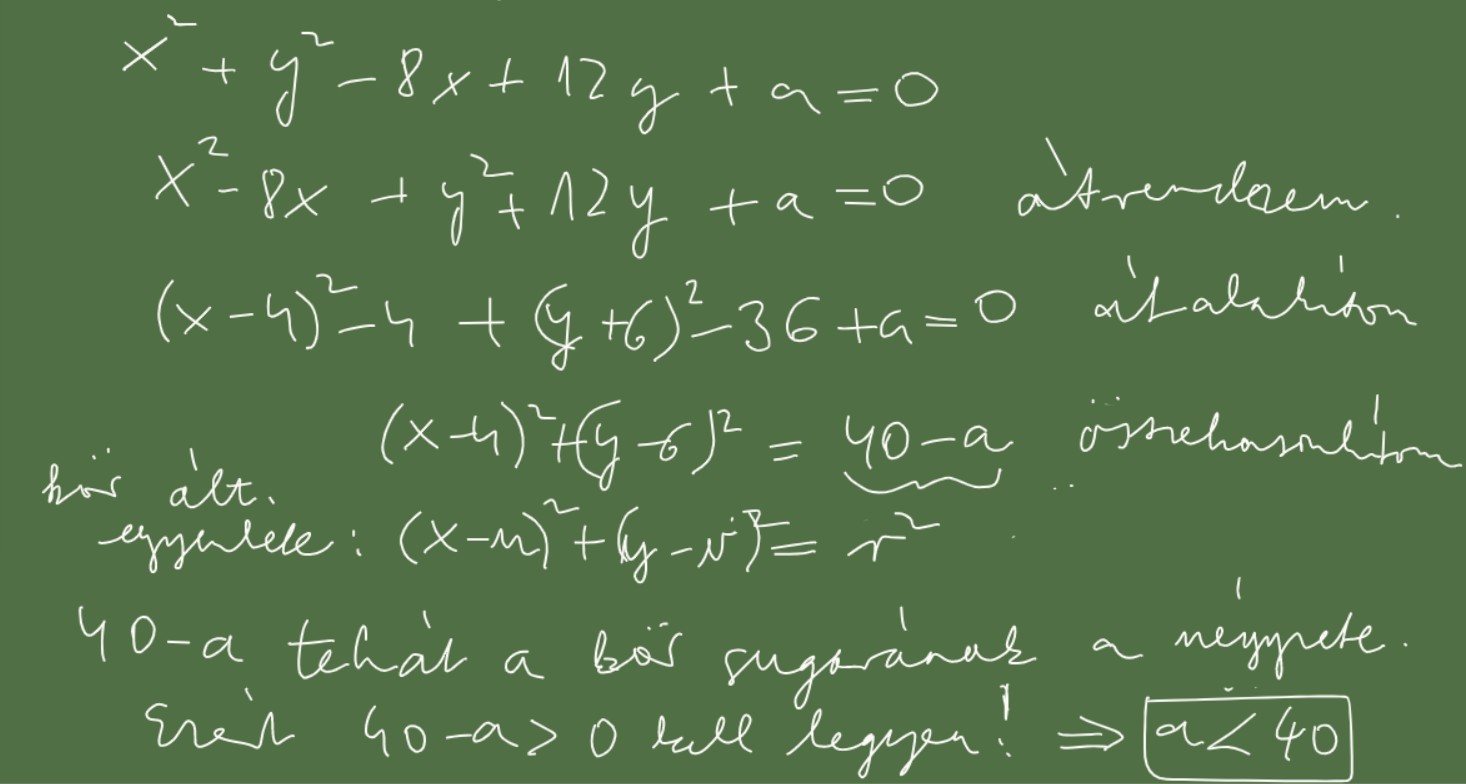 x² + y² - 8x + 12y + a = 0
x² - 8x + y² + 12y + a = 0 átrendezem.
(x-4)² - 4 + (y+6)² - 36 + a = 0 átalakítom
(x-4)² + (y-6)² = 40-a összehasonlítom
kör ált.
egyenlete: (x-u)² + (y-v)² = r²
40-a tehát a kör sugarának a négyzete.
Ezért 40-a > 0 kell legyen! ⇒ a < 40